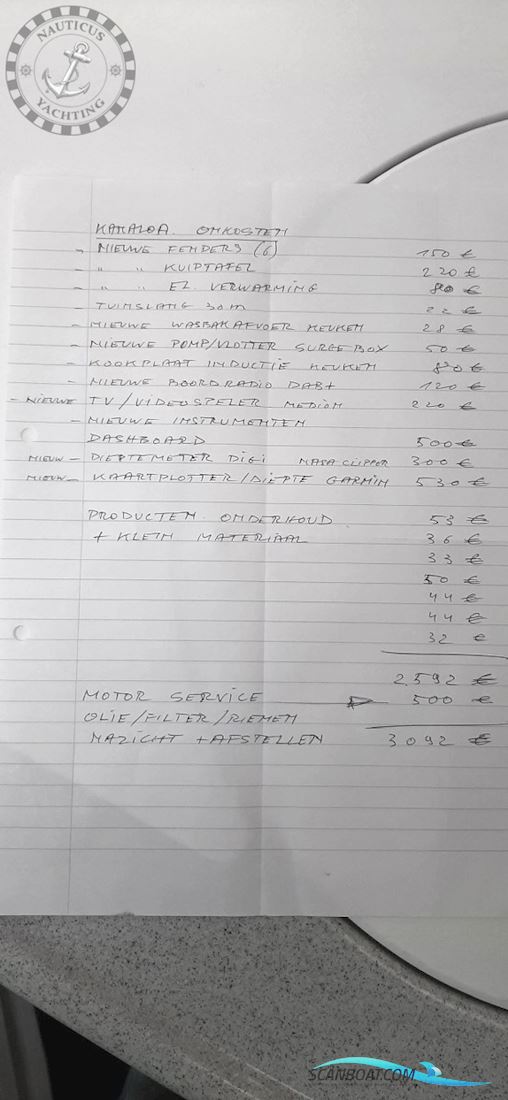 NAUTICUS
YACHTING
KANALOA. ONKOSTEN
- NIEUWE FENDERS (6) 150 €
- " " KUIPTAFEL 220 €
- " " EL. VERWARMING 80 €
- TUINSLANG 30m 22 €
- NIEUWE WASBAKAFVOER KEUKEN 28 €
- NIEUWE POMP/VLOTTER SURGEBOX 50 €
- KOOKPLAAT INDUCTIE KEUKEN 80 €
- NIEUWE BOORDRADIO DAB+ 120 €
- NIEUWE TV/VIDEOSPELER MEDION 220 €
- NIEUWE INSTRUMENTEN
DASHBOARD 500 €
NIEUW - DIEPTEMETER DIGI NASA CLIPPER 300 €
NIEUW - KAARTPLOTTER/DIEPTE GARMIN 530 €
PRODUCTEN ONDERHOUD 53 €
+ KLEIN MATERIAAL 36 €
33 €
50 €
44 €
44 €
32 €
2592 €
MOTOR SERVICE 500 €
OLIE/FILTER/RIEMEN
NAZICHT + AFSTELLEN 3092 €
SCANBOAT.COM